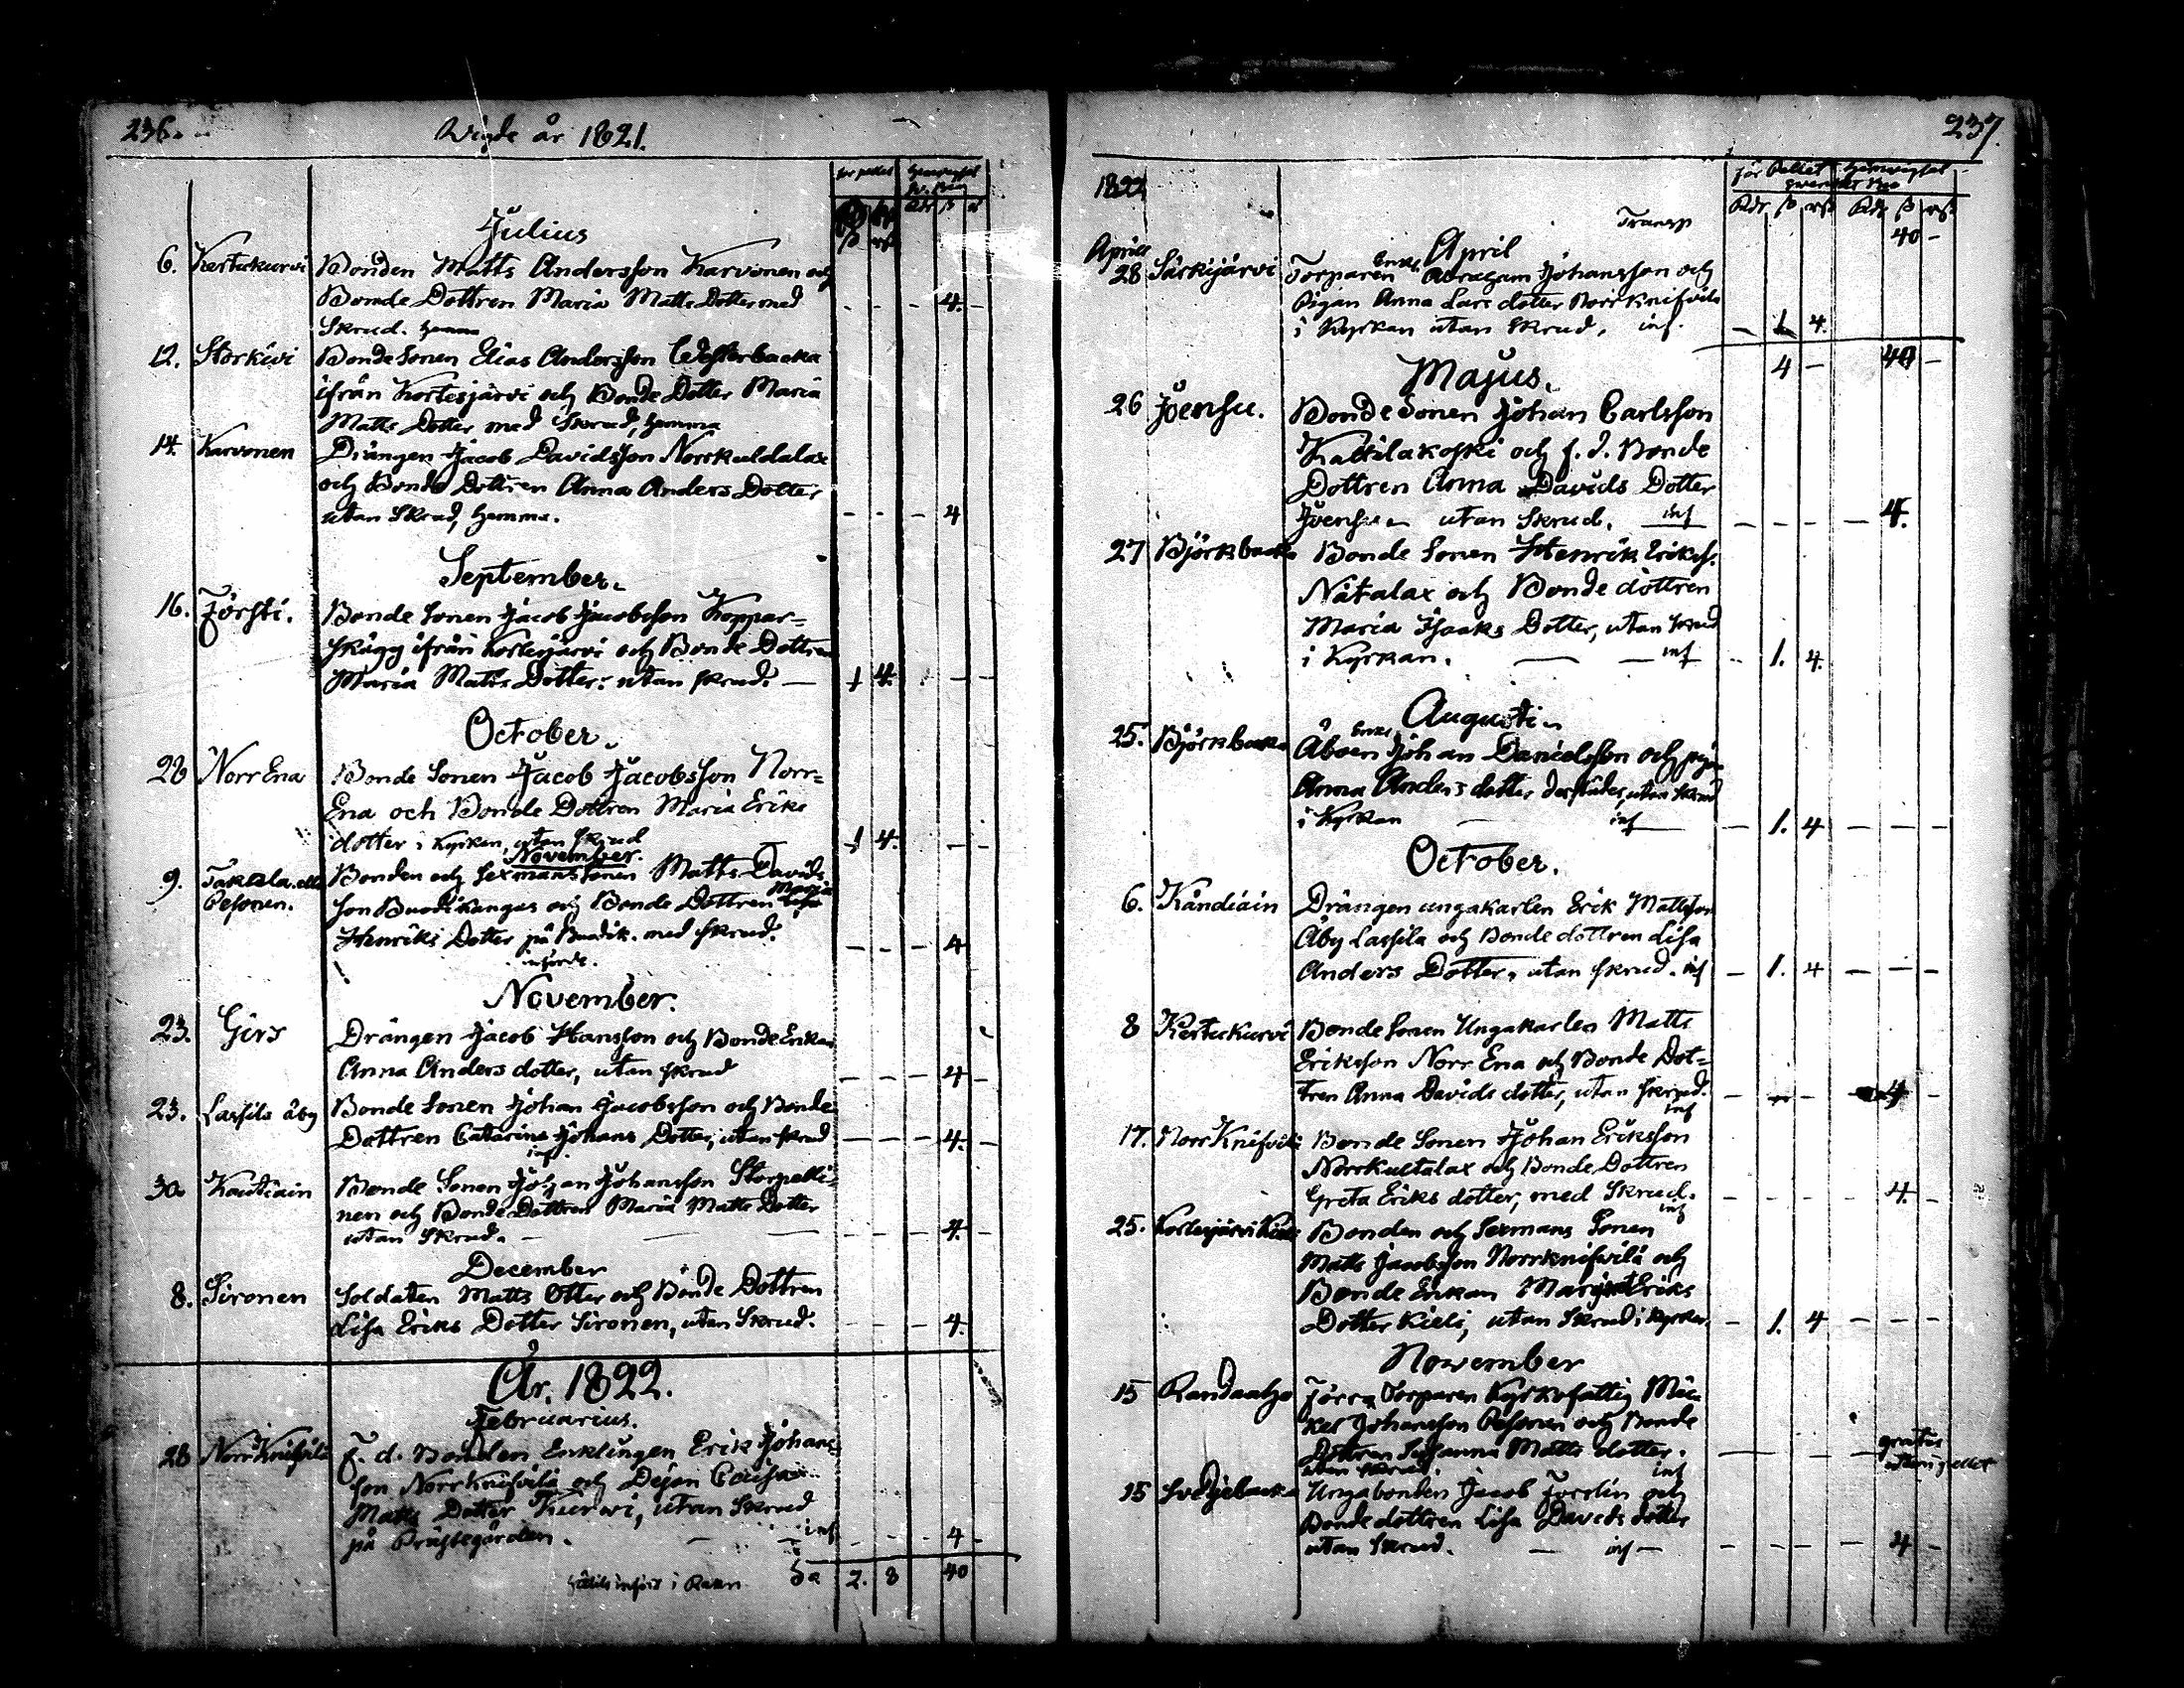 236.
Wigde år 1821.
för pellet
Hemvigsel
Rdr ß
Julius
6. Kertukurvi Bonden Matts Andersson Karvonen och
Bonde Dottren Maria Matts Dotter med - - - 4. -
Skrud. hemma
12. Storkivi Bonde Sonen Elias Andersson Westerbacka
ifrån Kortesjärvi och Bonde Dotter Maria
Matts Dotter med Skrud, hemma
14. Karvonen Drängen Jacob Davidsson Norrkuldalax
och Bonde Dottren Anna Anders Dotter
utan Skrud, hemma. - - - 4
September.
16. Försti. Bonde Sonen Jacob Jacobsson Koppar=
skägg ifrån Kortesjärvi och Bonde Dottren
Maria Matts Dotter: utan skrud. — 1 4. - -
October.
28 Norr Ena Bonde Sonen Jacob Jacobsson Norr=
Ena och Bonde Dottren Maria Eriks
dotter i Kyrkan, utan skrud 1 4. - -
November.
9. Takala. eller Bonden och Sexmans Sonen Matts Davids
Pesonen. son Buodikangas och Bonde Dottren Maria Lisa
Henriks Dotter på Buodik. med skrud. - - - 4
införde.
November.
23. Girs Drängen Jacob Hansson och Bonde Enkan
Anna Anders dotter, utan skrud - - - 4 -
23. Lassila åby Bonde Sonen Johan Jacobsson och Bonde
Dottren Catarina Johans Dotter, utan skrud - - - 4. -
inf.
30. Kautiain Bonde Sonen Johan Johansson Storpelli=
nen och Bonde Dottren Maria Matts Dotter
utan Skrud. - - - 4. -
December
8. Sironen Soldaten Matts Otter och Bonde Dottren
Lisa Eriks Dotter Sironen, utan Skrud. - - - 4.
År. 1822.
Februarius.
28 Norr Knifsilä F. d. Bonden Enklingen Erik Johans=
son Norrknifsilä och Dejan Caisa
Matts Dotter Kurwi, utan Skrud
på Prästegården. inf - - - 4 -
införd i Räkn Sa 2. 8 40
237.
1822
för Pellet Hemvigsel
Rdr ß rst Rdr ß rst
Transp 40 -
April
April
28 Särkijärvi Torparen Enkl Abraham Johansson och
Pigan Anna Lars dotter Norrknifsilä
i Kyrkan utan skrud. inf. - 1 4.
4 - 40 -
Majus.
26 Joensu. Bonde Sonen Johan Carlsson
Kattilakoski och f. d. Bonde
Dottren Anna Davids Dotter
Joensu utan Skrud. inf - - - - 4.
27 Björkbacka Bonde Sonen Henrik Erikss.
Nätalax och Bonde dottren
Maria Isaaks Dotter, utan skrud
i Kyrkan. — — inf - 1. 4.
Augusti.
25. Björkbacka Åboen Enkl Johan Danielsson och pigan
Anna Anders dotter dersädes, utan skrud
i Kyrkan inf - 1. 4 - - -
October.
6. Kåndiain Drängen ungakarlen Erik Mattsson
Åby Lassila och Bonde dottren Lisa
Anders Dotter, utan skrud. inf - 1. 4 - - -
8 Kertukurvi Bonde Sonen Ungakarlen Matts
Eriksson Norr Ena och Bonde Dot=
tren Anna Davids dotter, utan skrud. - - - 4 -
inf
17. Norr Knifsilä Bonde Sonen Johan Eriksson
Norrkultalax och Bonde Dottren
Greta Eriks dotter, med Skrud. - - - - 4 -
inf
25. Kortesjärvi Kieli Bonden och Sexmans Sonen
Matts Jacobsson Norrknifsilä och
Bonde Enkan Margeta Eriks
Dotter Kieli, utan Skrud i Kyrkan. - 1. 4 - - -
November
15 Randaaho Förra Torparen Kyrkofattig Mic=
kel Johansson Pesonen och Bonde
Dottren Susanna Matts dotter. - - - gratis
utan skrud. inf utan pellet
15 Svedjebacka Ungabonden Jacob Forslin och
Bonde dottren Lisa Davids dotter
utan Skrud. — inf — - - - - 4 -